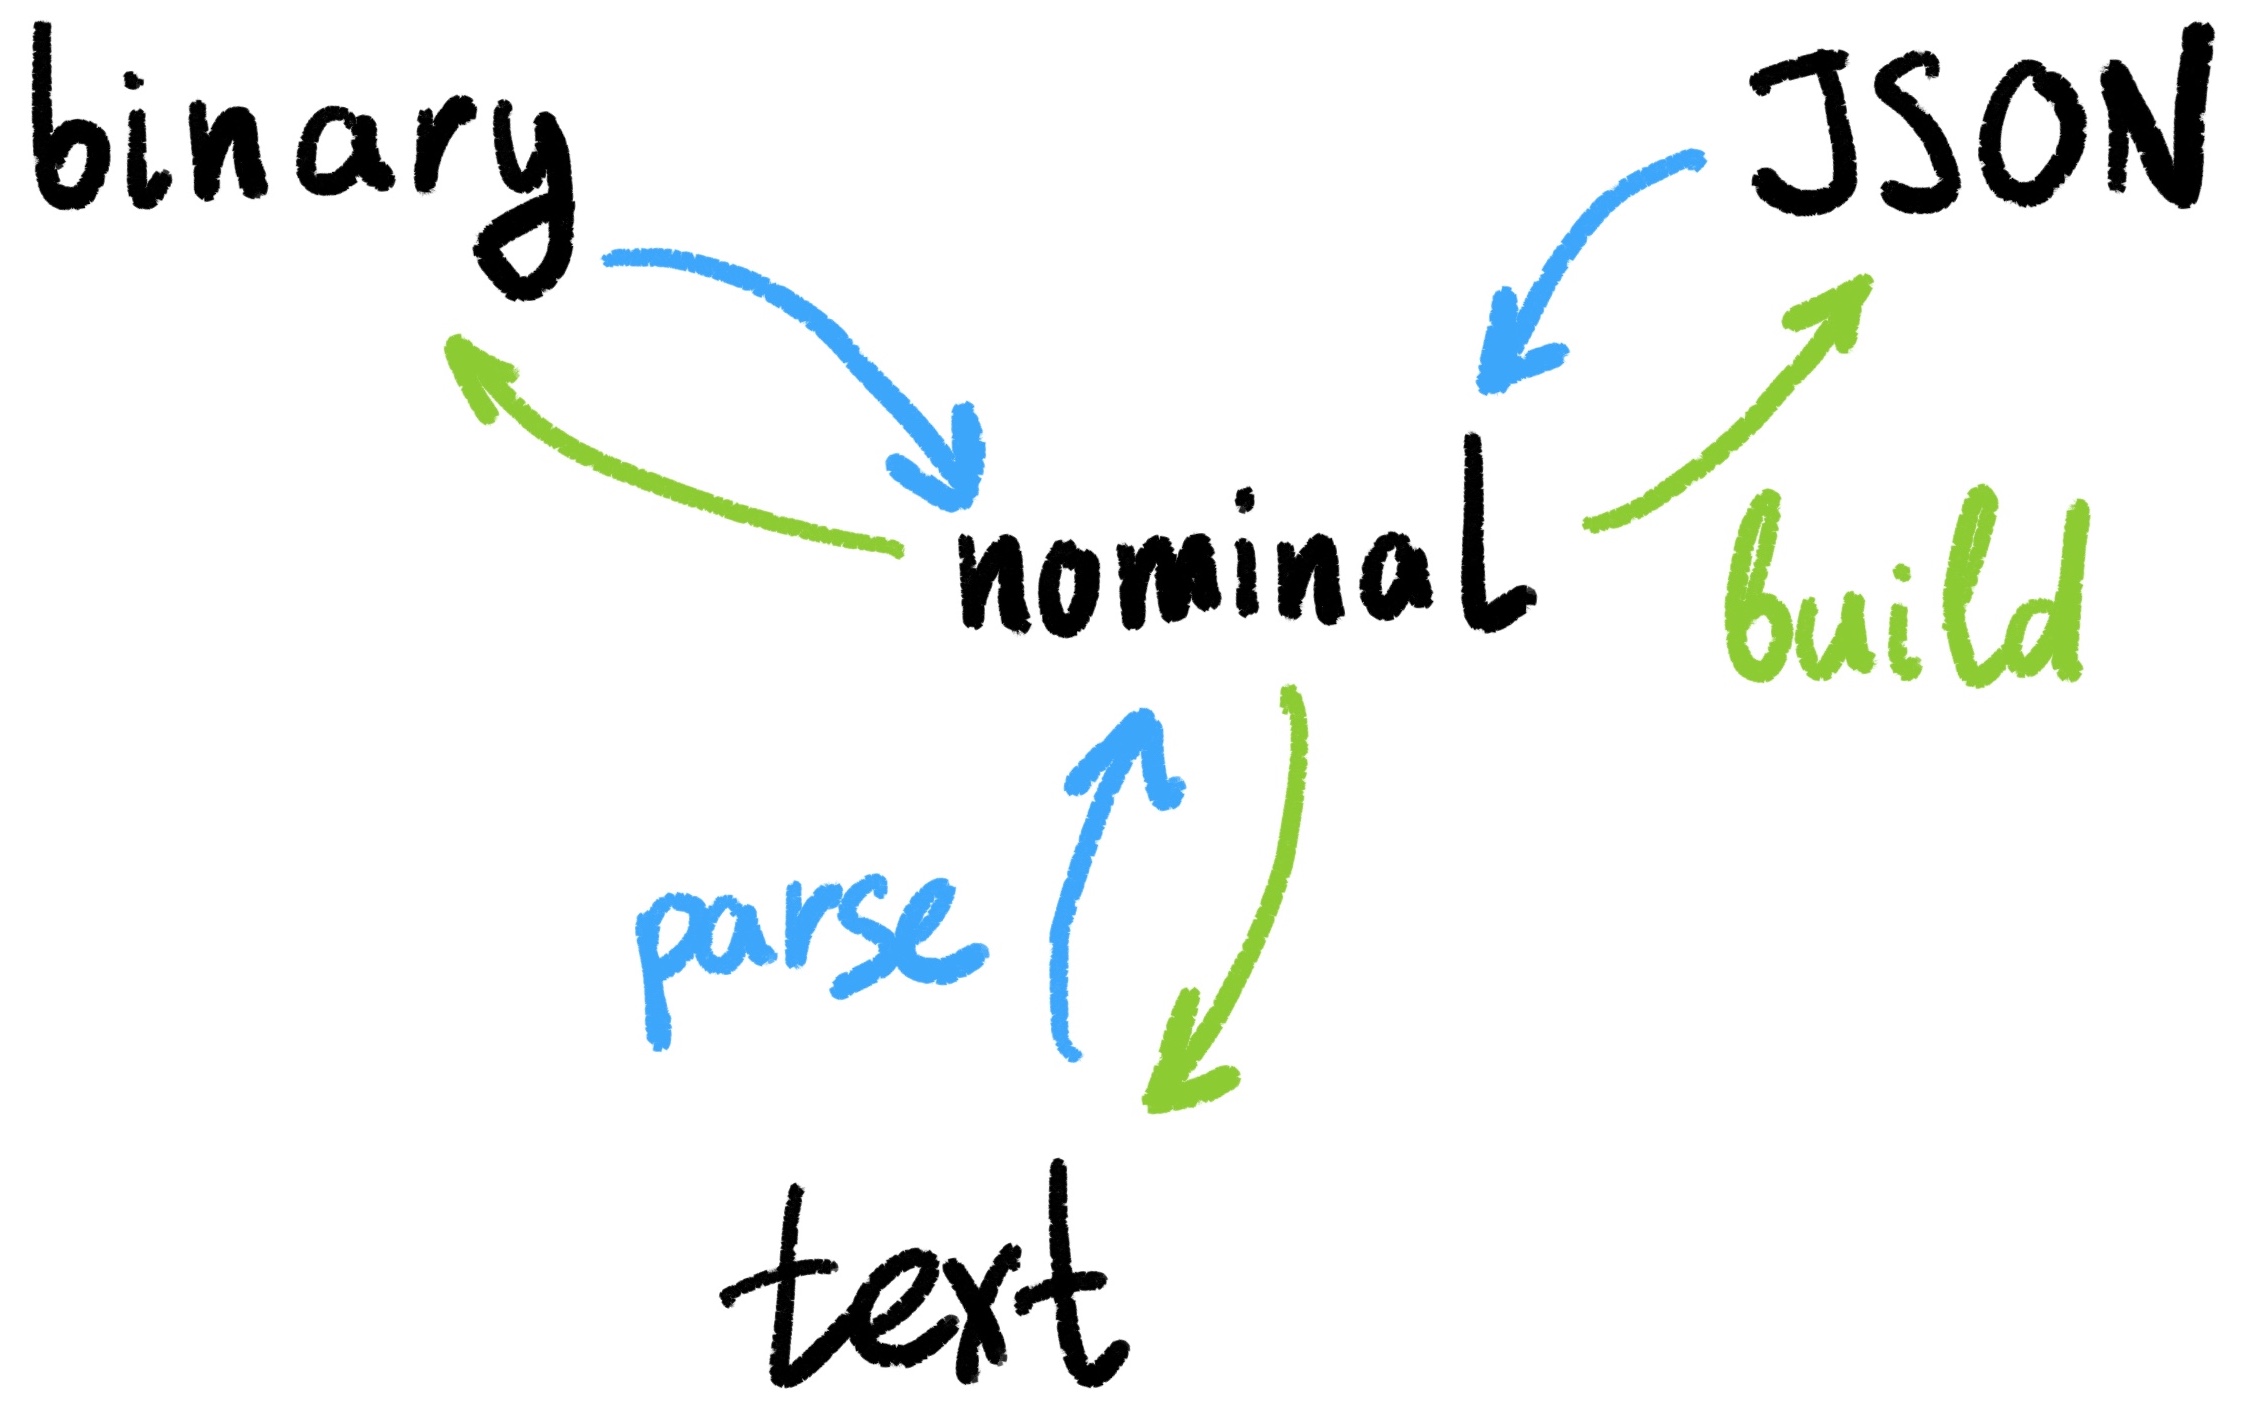 binary
JSON
nominal
build
parse
text